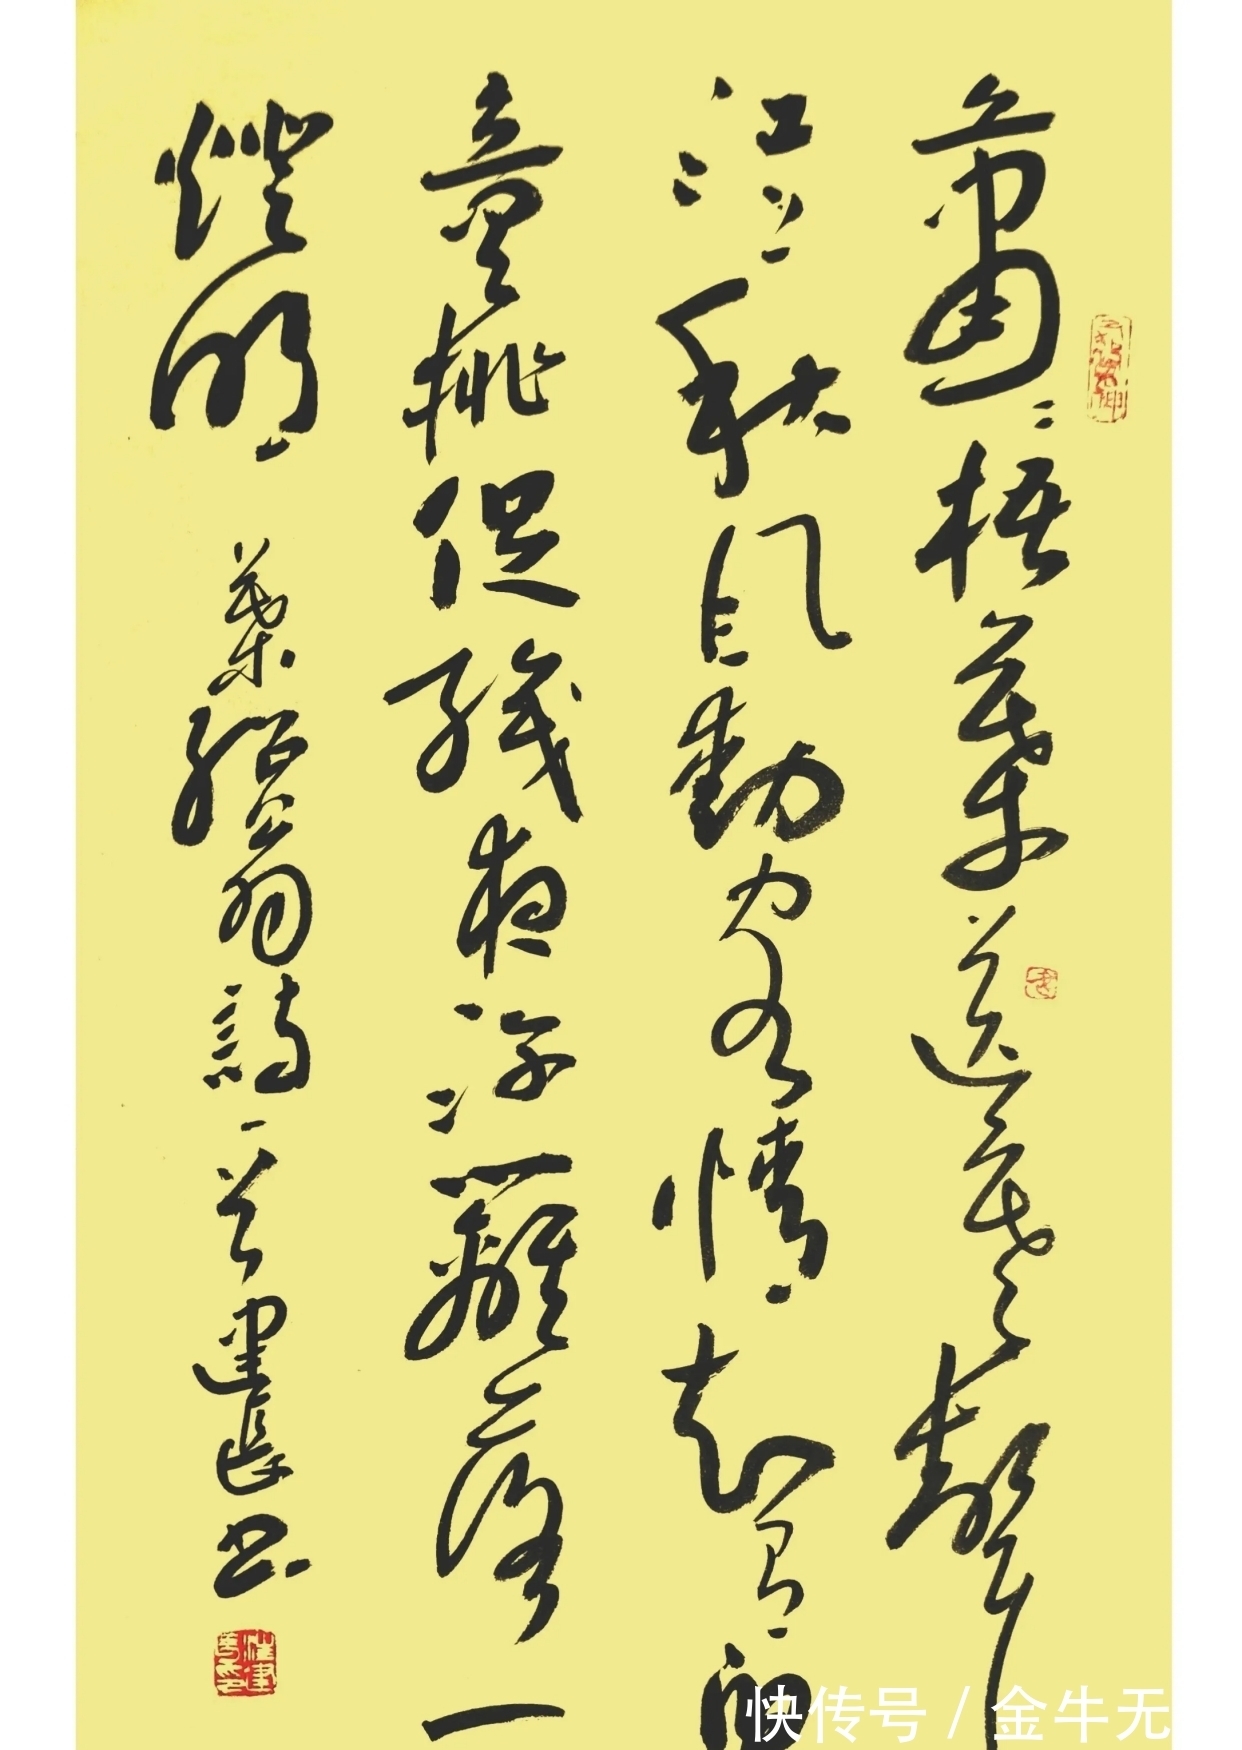 蕭々梧葉送寒聲
江上秋風動客情知有兒
童挑促織夜深籬落一
燈明 葉紹翁詩一首建長书
快传号 / 金牛无